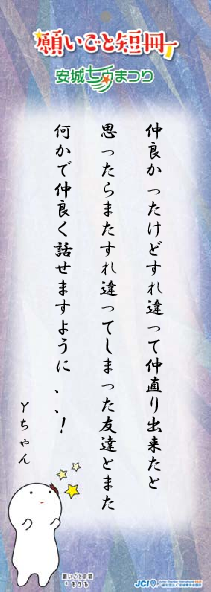 願いごと短冊
安城七夕まつり
仲良かったけどすれ違って仲直り出来たと
思ったらまたすれ違ってしまった友達とまた
何かで仲良く話せますように、、！
Yちゃん
JCI